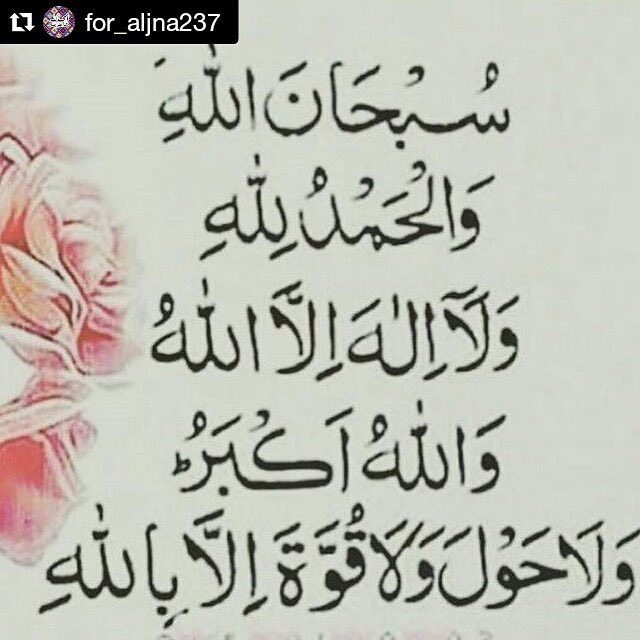 for_aljna237
سُبْحَانَ اللّٰهِ
وَالْحَمْدُ لِلّٰهِ
وَلَآ اِلٰهَ اِلَّا اللّٰهُ
وَاللّٰهُ اَكْبَرُؕ
وَلَا حَوْلَ وَلَا قُوَّةَ اِلَّا بِاللّٰهِ